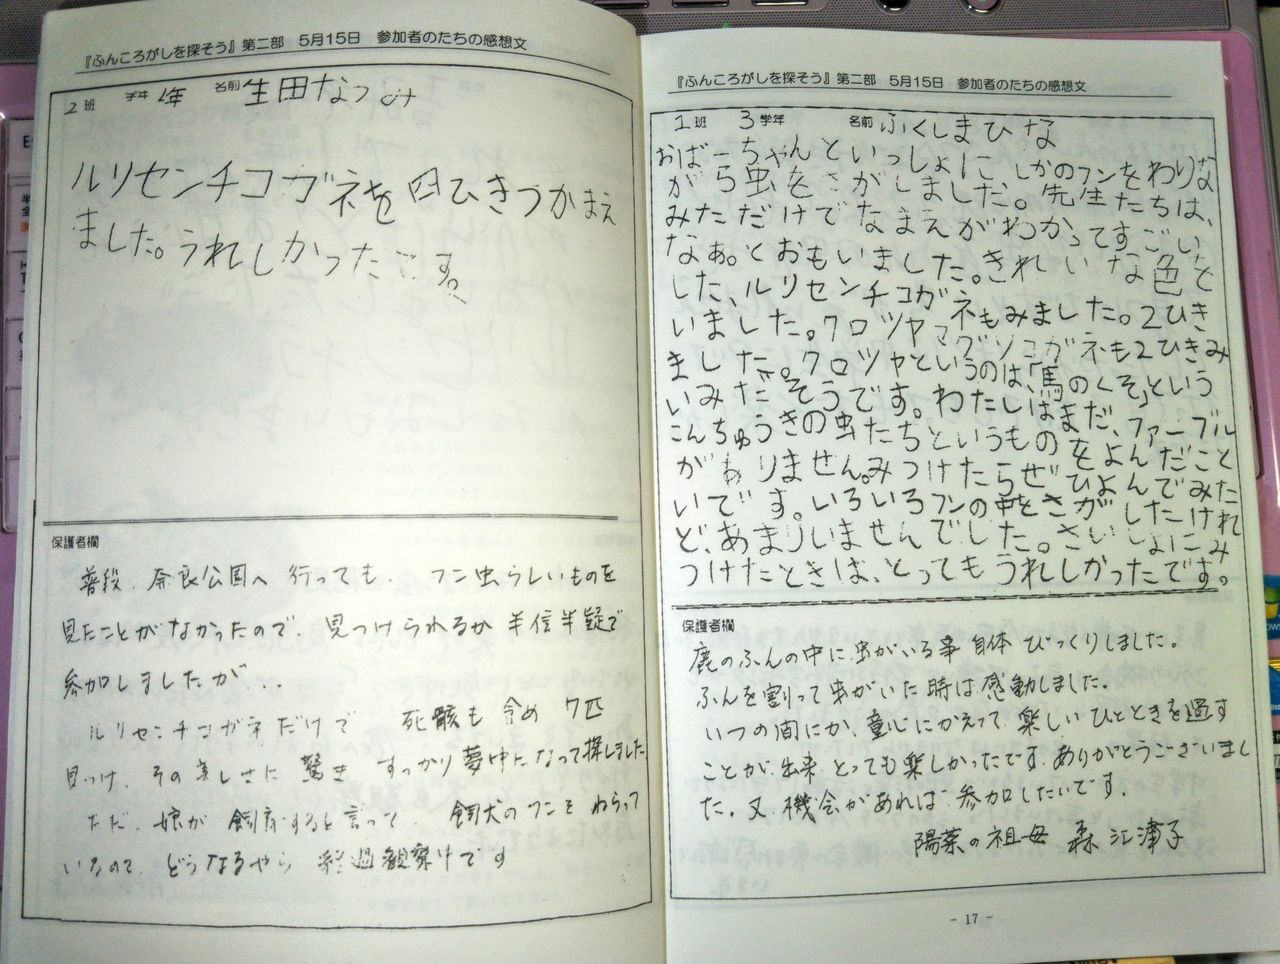 『ふんころがしを探そう』第二部　5月15日　参加者のたちの感想文
2班　学年 1年　名前 生田なつみ
ルリセンチコガネを四ひきつかまえ
ました。うれしかったです。
保護者欄
普段、奈良公園へ行っても、フン虫らしいものを
見たことがなかったので、見つけられるか半信半疑で
参加しましたが‥
ルリセンチコガネだけで　死骸も含め7匹
見つけ、その美しさに驚き　すっかり夢中になって探しました
ただ、娘が飼育すると言って、飼犬のフンをねらって
いるので、どうなるやら　経過観察中です
『ふんころがしを探そう』第二部　5月15日　参加者のたちの感想文
1班　3学年　名前 ふくしまひな
おばーちゃんといっしょに しかのフンをわりな
がら虫をさがしました。先生たちは、
みただけでなまえがわかってすごい
なぁ。とおもいました。きれいな色と
した、ルリセンチコガネもみました。2ひき
いました。クロツヤマグソコガネも2ひきみ
ました。クロツヤというのは、「馬のくそ」という
いみだそうです。わたしはまだ、ファーブル
こんちゅうきの虫たちというものをよんだこと
がありません。みつけたらぜひよんでみた
いです。いろいろフンの中をさがしたけれ
ど、あまりいませんでした。さいしょにみ
つけたときは、とってもうれしかったです。
保護者欄
鹿のふんの中に虫がいる事自体びっくりしました。
ふんを割って虫がいた時は感動しました。
いつの間にか、童心にかえって、楽しいひとときを過す
ことが出来、とっても楽しかったです。ありがとうございまし
た。又、機会があれば、参加したいです。
陽菜の祖母　森 江津子
- 17 -